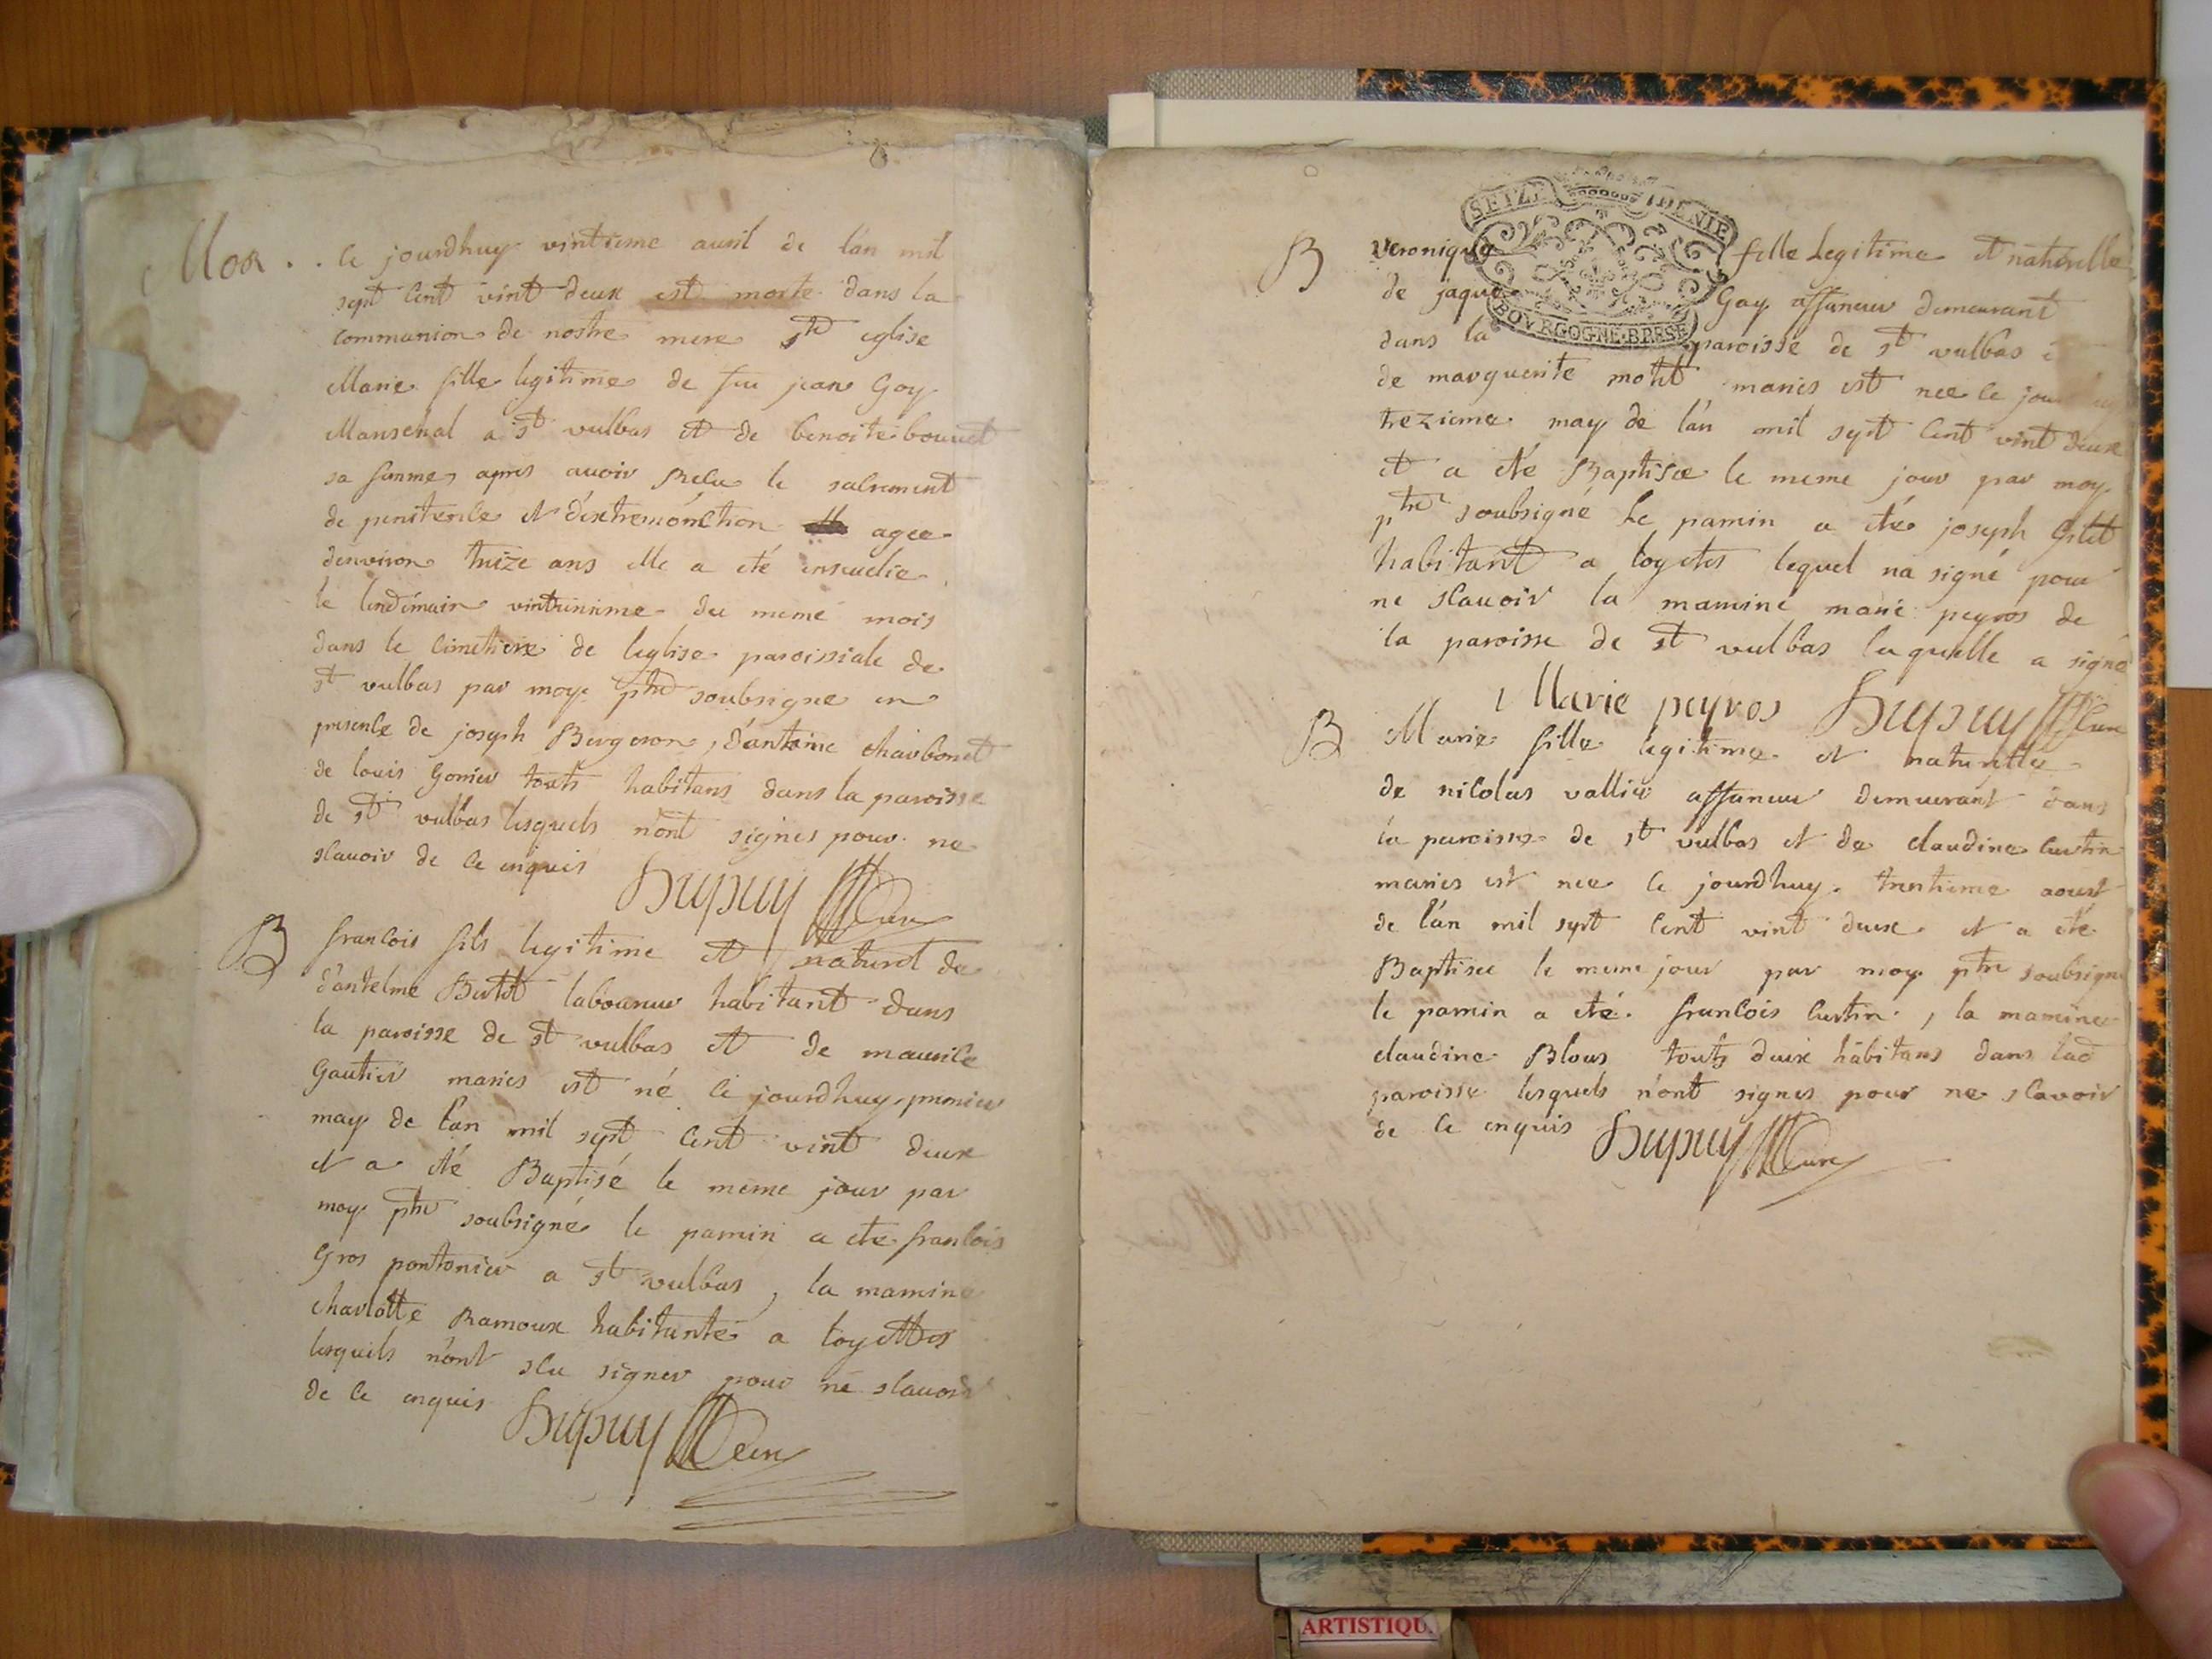 Mor .. Ce jourdhuy vintieme auril de lán mil
sept Cent vint deux est morte dans la
communion de nostre mere ste eglise
Marie fille legitime de feu jean Goy
Mareschal a st vulbas et de benoite bouuet
sa famme apres auoir Recu le sacrement
de penitence et déxtremónction agee
dénviron treize ans elle a eté enseuelie
le lendémain vintunieme du meme mois
dans le Cimetiere de leglise paroissiale de
st vulbas par moy ptre soubsigne en
presence de joseph Bergeron, dántoine charbonet
de louis Gonier touts habitans dans la paroisse
de st vulbas lesquels nónt signes pour ne
scauoir de Ce enquis Dupuy Cure
B francois fils legitime et naturel de
dántelme Butet laboureur habitant dans
la paroisse de st vulbas et de maurice
Gautier maries est né Ce jourdhuy premier
may de lán mil sept Cent vint deux
et a eté Baptisé le meme jour par
moy ptre soubsigné le parrin a eté francois
Gros pontonier a st vulbas, la marrine
charlotte Ramoux habitante a loyettes
lesquels nónt sceu signer pour ne scauoir
de Ce enquis Dupuy Cure
SEIZE DENIE
BOVRGOGNE·BRESSE
B Veronique fille Legitime et naturelle
de jaque Gay affaneur demeurant
dans la paroisse de st vulbas
de marguerite motet maries est nee Ce
trezieme may de lán mil sept Cent vint deux
et a eté Baptisee le meme jour par moy
ptre soubsigné Le parrin a eté joseph Gilet
habitant a loyetes lequel na signé pour
ne scauoir la marrine marie peyros de
la paroisse de st vulbas laquelle a signé
Marie peyros Dupuy Cure
B Marie fille legitime et naturelle
de nicolas vallier affaneur demeurant dans
la paroisse de st vulbas et de claudine Curtin
maries est nee Ce jourdhuy trentieme aoust
de lán mil sept Cent vint deux et a eté
Baptisee le meme jour par moy ptre soubsigne
le parrin a eté francois Curtin, la marrine
claudine Blous touts deux habitans dans lad
paroisse lesquels nónt signes pour ne scavoir
de Ce enquis Dupuy Cure
ARTISTIQU